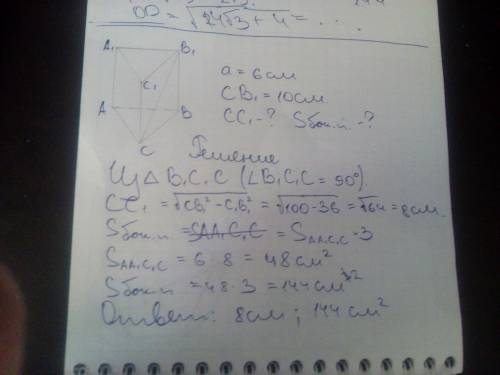 OD = √24√3 + 4 = . . .
A₁ B₁
C₁
A B
C
a = 6 см
CB₁ = 10 см
CC₁ - ? Sбок.п - ?
Решение
Из △ B₁C₁C (∠B₁C₁C = 90°)
CC₁ = √CB₁² - C₁B₁² = √100-36 = √64 = 8 см.
Sбок.п = SAA₁C₁C = SAA₁C₁C · 3
SAA₁C₁C = 6 · 8 = 48 см²
Sбок.п = 48 · 3 = 144 см²
Ответ: 8 см ; 144 см²